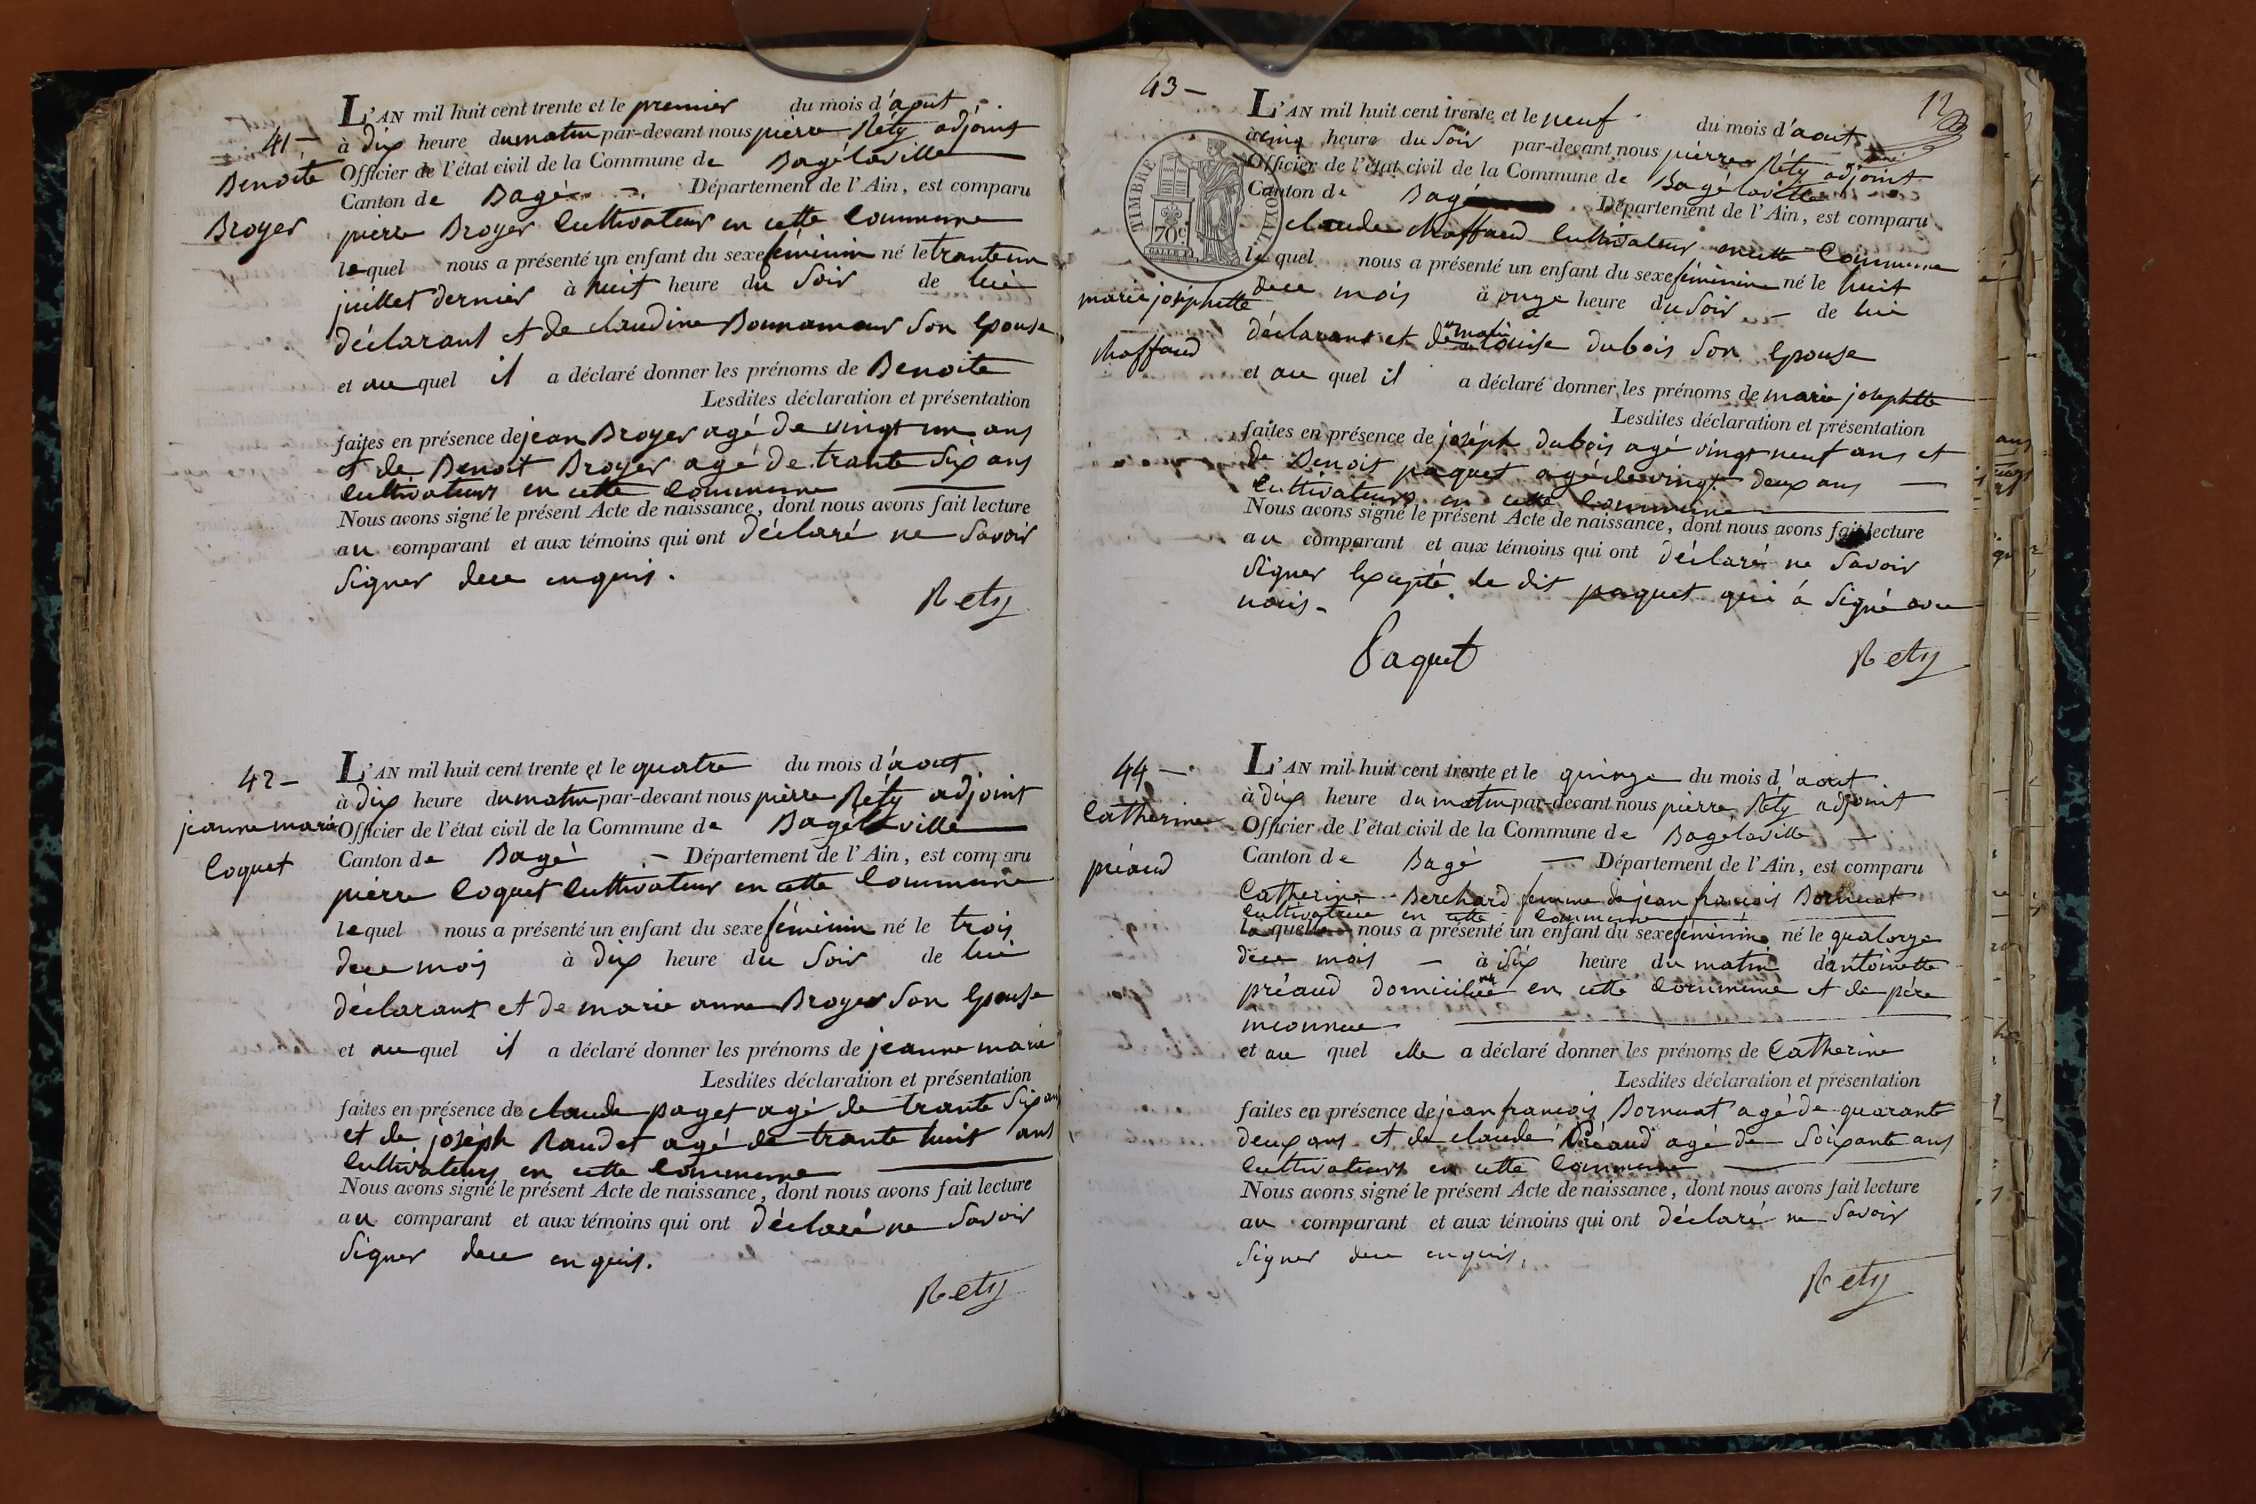 41 —
Benoite
Broyer
L'AN mil huit cent trente et le premier du mois d'aout
à dix heure du matin par-devant nous pierre Réty adjoint
Officier de l'état civil de la Commune de Bagélaville
Canton de Bagé — Département de l'Ain, est comparu
pierre Broyer Cultivateur en cette Commune
lequel nous a présenté un enfant du sexe féminin né le trante un
juillet dernier à huit heure du Soir de lui
déclarant et de claudine Bonnamour Son Epouse
et au quel il a déclaré donner les prénoms de Benoite
Lesdites déclaration et présentation
faites en présence de jean Broyer agé de vingt un ans
et de Benoit Broyer agé de trante Six ans
Cultivateurs en cette Commune
Nous avons signé le présent Acte de naissance, dont nous avons fait lecture
au comparant et aux témoins qui ont déclaré ne Savoir
Signer dece enquis.
Rety
42 —
jeanne marie
Coquet
L'AN mil huit cent trente et le quatre du mois d'aout
à dix heure du matin par-devant nous pierre Réty adjoint
Officier de l'état civil de la Commune de Bagélaville
Canton de Bagé — Département de l'Ain, est comparu
pierre Coquet Cultivateur en cette Commune
lequel nous a présenté un enfant du sexe féminin né le trois
dece mois à dix heure du Soir de lui
déclarant et de marie anne Broyer Son Epouse
et au quel il a déclaré donner les prénoms de jeanne marie
Lesdites déclaration et présentation
faites en présence de claude paget agé de trante Six ans
et de joséph Raudet agé de trante huit ans
Cultivateurs en cette Commune
Nous avons signé le présent Acte de naissance, dont nous avons fait lecture
au comparant et aux témoins qui ont déclaré ne Savoir
Signer dece enquis.
Rety
12
43 —
TIMBRE ROYAL
70c
marie joséphette
Chaffaud
L'AN mil huit cent trente et le neuf du mois d'aout
à cinq heure du Soir par-devant nous pierre Réty adjoint
Officier de l'état civil de la Commune de Bagélaville
Canton de Bagé Département de l'Ain, est comparu
claude Chaffaud Cultivateur en cette Commune
le quel nous a présenté un enfant du sexe féminin né le huit
dece mois à onze heure du Soir — de lui
déclarant et de marie Louise dubois Son Epouse
et au quel il a déclaré donner les prénoms de marie joséphette
Lesdites déclaration et présentation
faites en présence de joséph dubois agé vingt neuf ans et
de Benoit paquet agé de vingt deux ans —
Cultivateurs en cette Commune
Nous avons signé le présent Acte de naissance, dont nous avons fait lecture
au comparant et aux témoins qui ont déclaré ne Savoir
Signer Excepté le dit paquet qui à Signé avec
nous.
Paquet
Rety
44 —
Catherine
préaud
L'AN mil huit cent trente et le quinze du mois d'aout
à dix heure du matin par-devant nous pierre Réty adjoint
Officier de l'état civil de la Commune de Bagelaville
Canton de Bagé — Département de l'Ain, est comparu
Catherine Berchard femme de jean francois Bornuat
Cultivatrice en cette Commune
la quelle nous a présenté un enfant du sexe féminine né le quatorze
dece mois — à Six heure du matin d'antoinette
préaud domiciliée en cette Commune et de père
inconnue
et au quel elle a déclaré donner les prénoms de Catherine
Lesdites déclaration et présentation
faites en présence de jean francois Bornuat agé de quarante
deux ans et de claude préaud agé de Soixante ans
Cultivateurs en cette Commune
Nous avons signé le présent Acte de naissance, dont nous avons fait lecture
au comparant et aux témoins qui ont déclaré ne Savoir
Signer dece enquis.
Rety